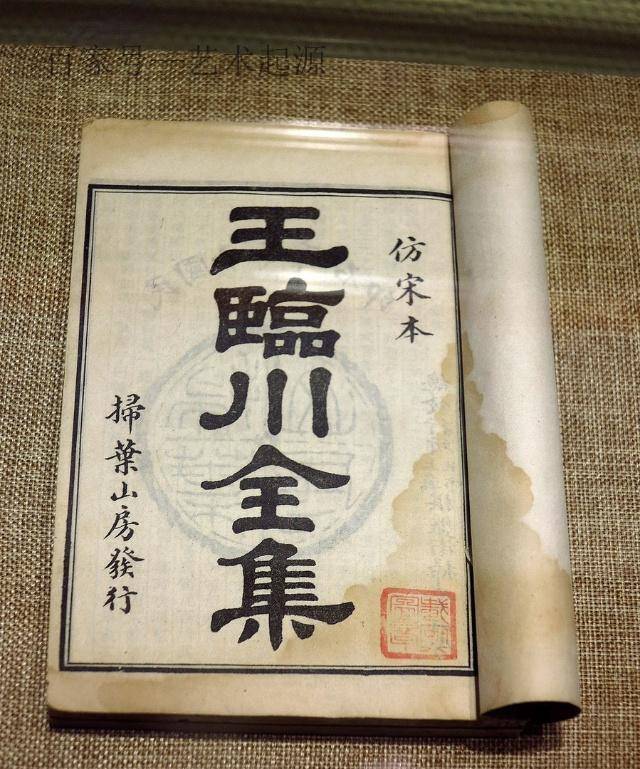 百家号—艺术起源
仿宋本
王臨川全集
掃葉山房發行